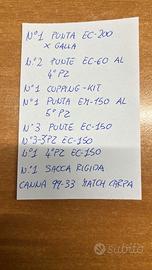 N°1 PUNTA EC-200
X GALLA
N°2 PUNTE EC-60 AL
4°PZ
N°1 CUPPING-KIT
N°1 PUNTA EM-150 AL
5°PZ
N°3 PUNTE EC-150
N°3-3°PZ EC-150
N°1 4°PZ EC-150
N°1 SACCA RIGIDA
CANNA 99-33 MATCH CARPA
subito